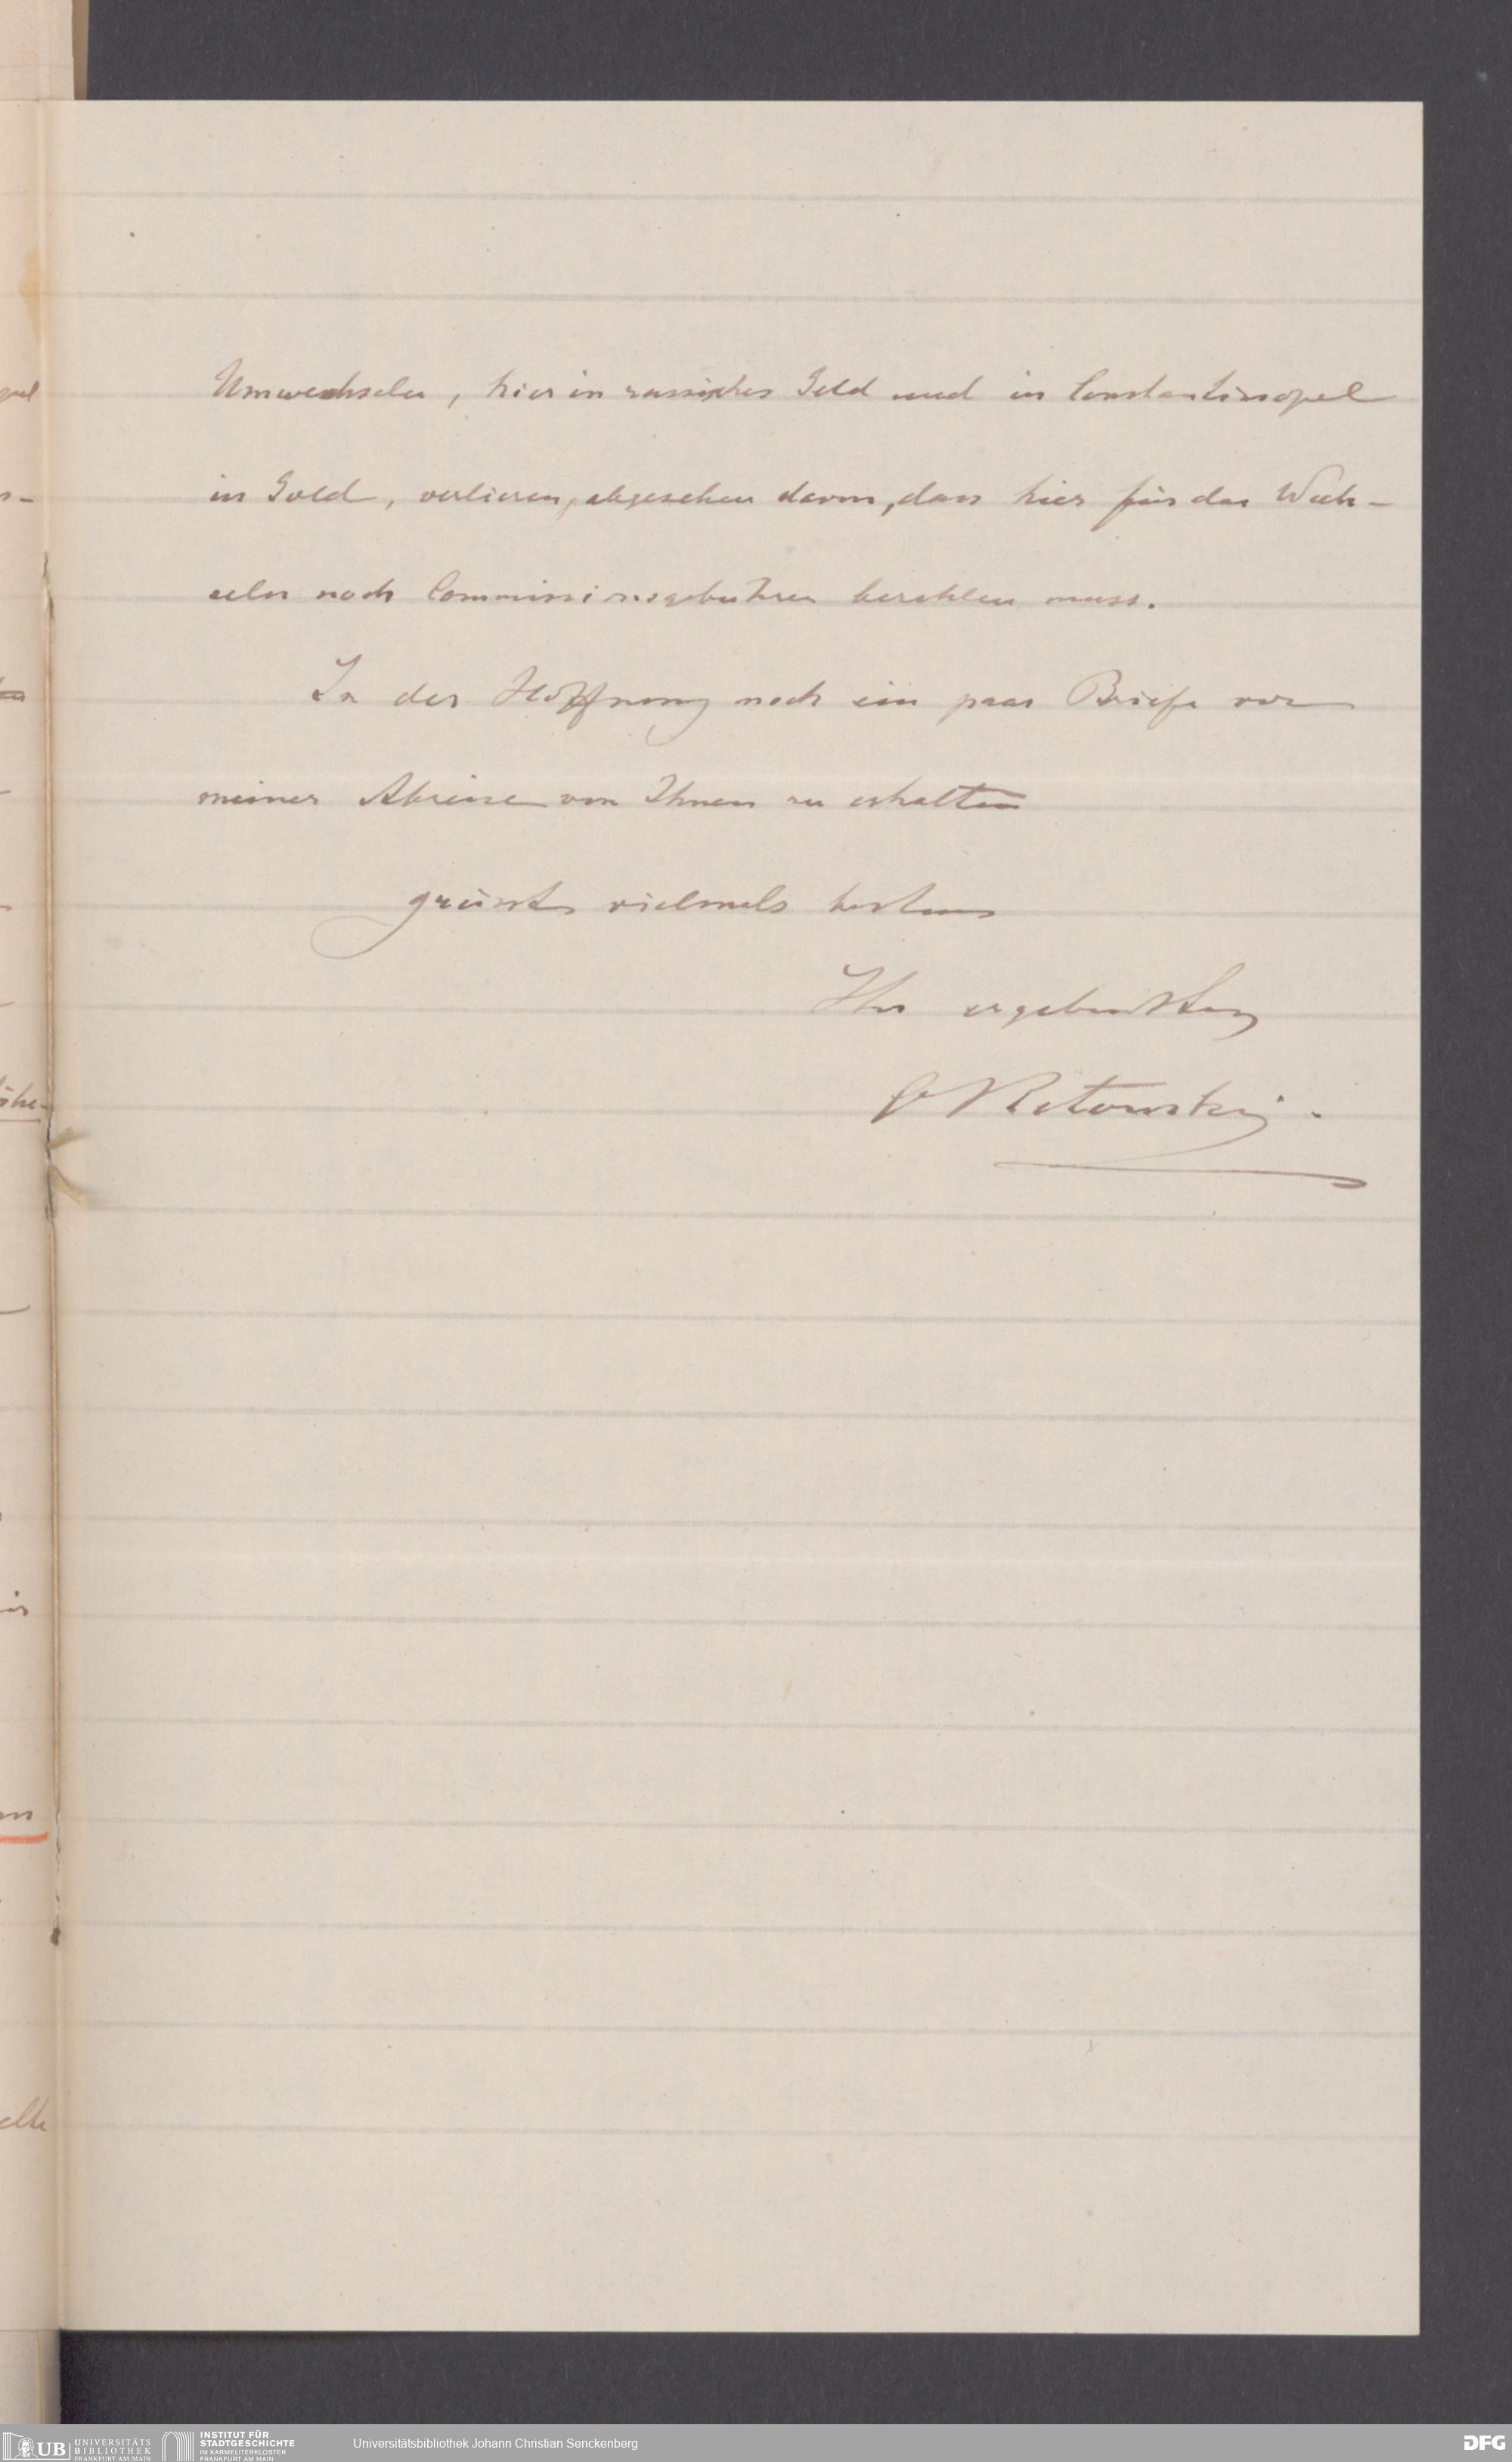 Umwechseln, hier in russisches Geld und in Constantinopel
in Gold, verlieren, abgesehen davon, dass hier für das Wech-
seln noch Commissionsgebühren bezahlen muss.
In der Hoffnung noch ein paar Briefe vor
meiner Abreise von Ihnen zu erhalten
grüsst vielmals bestens
Ihr ergebenster
O Retowski.
UB UNIVERSITÄTS BIBLIOTHEK FRANKFURT AM MAIN
INSTITUT FÜR STADTGESCHICHTE IM KARMELITERKLOSTER FRANKFURT AM MAIN
Universitätsbibliothek Johann Christian Senckenberg
DFG